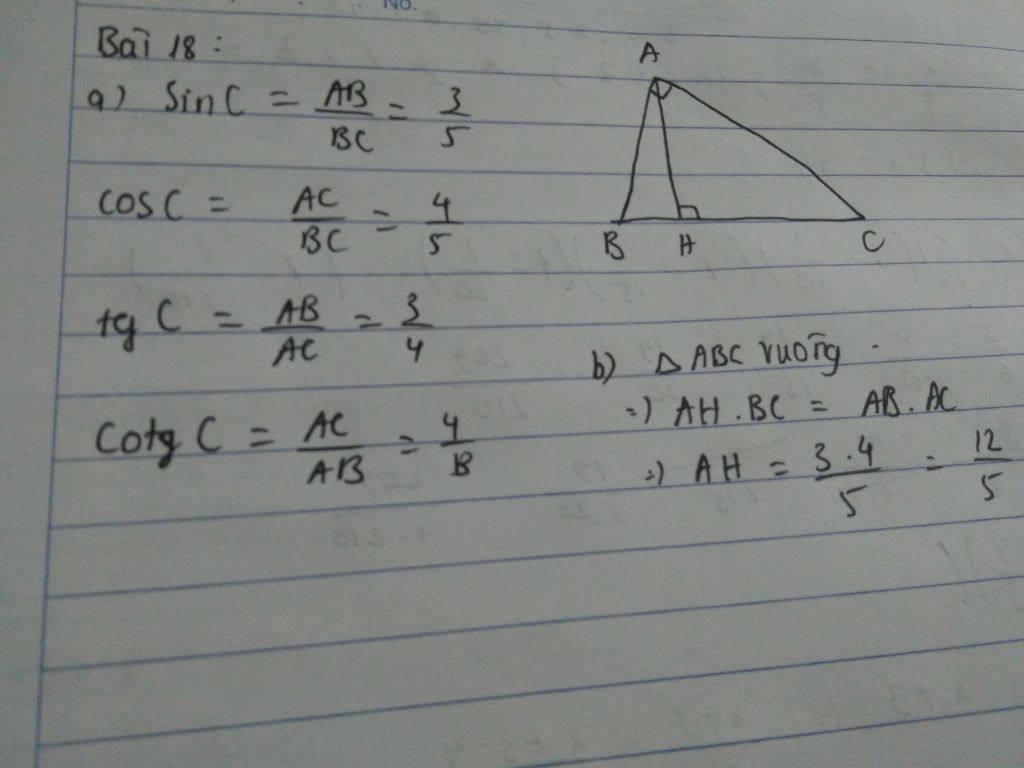 No.
Bài 18 :
a) Sin C = AB/BC = 3/5
cos C = AC/BC = 4/5
tg C = AB/AC = 3/4
Cotg C = AC/AB = 4/B
A
B H C
b) Δ ABC vuông .
=) AH . BC = AB . AC
=) AH = 3 . 4/5 = 12/5